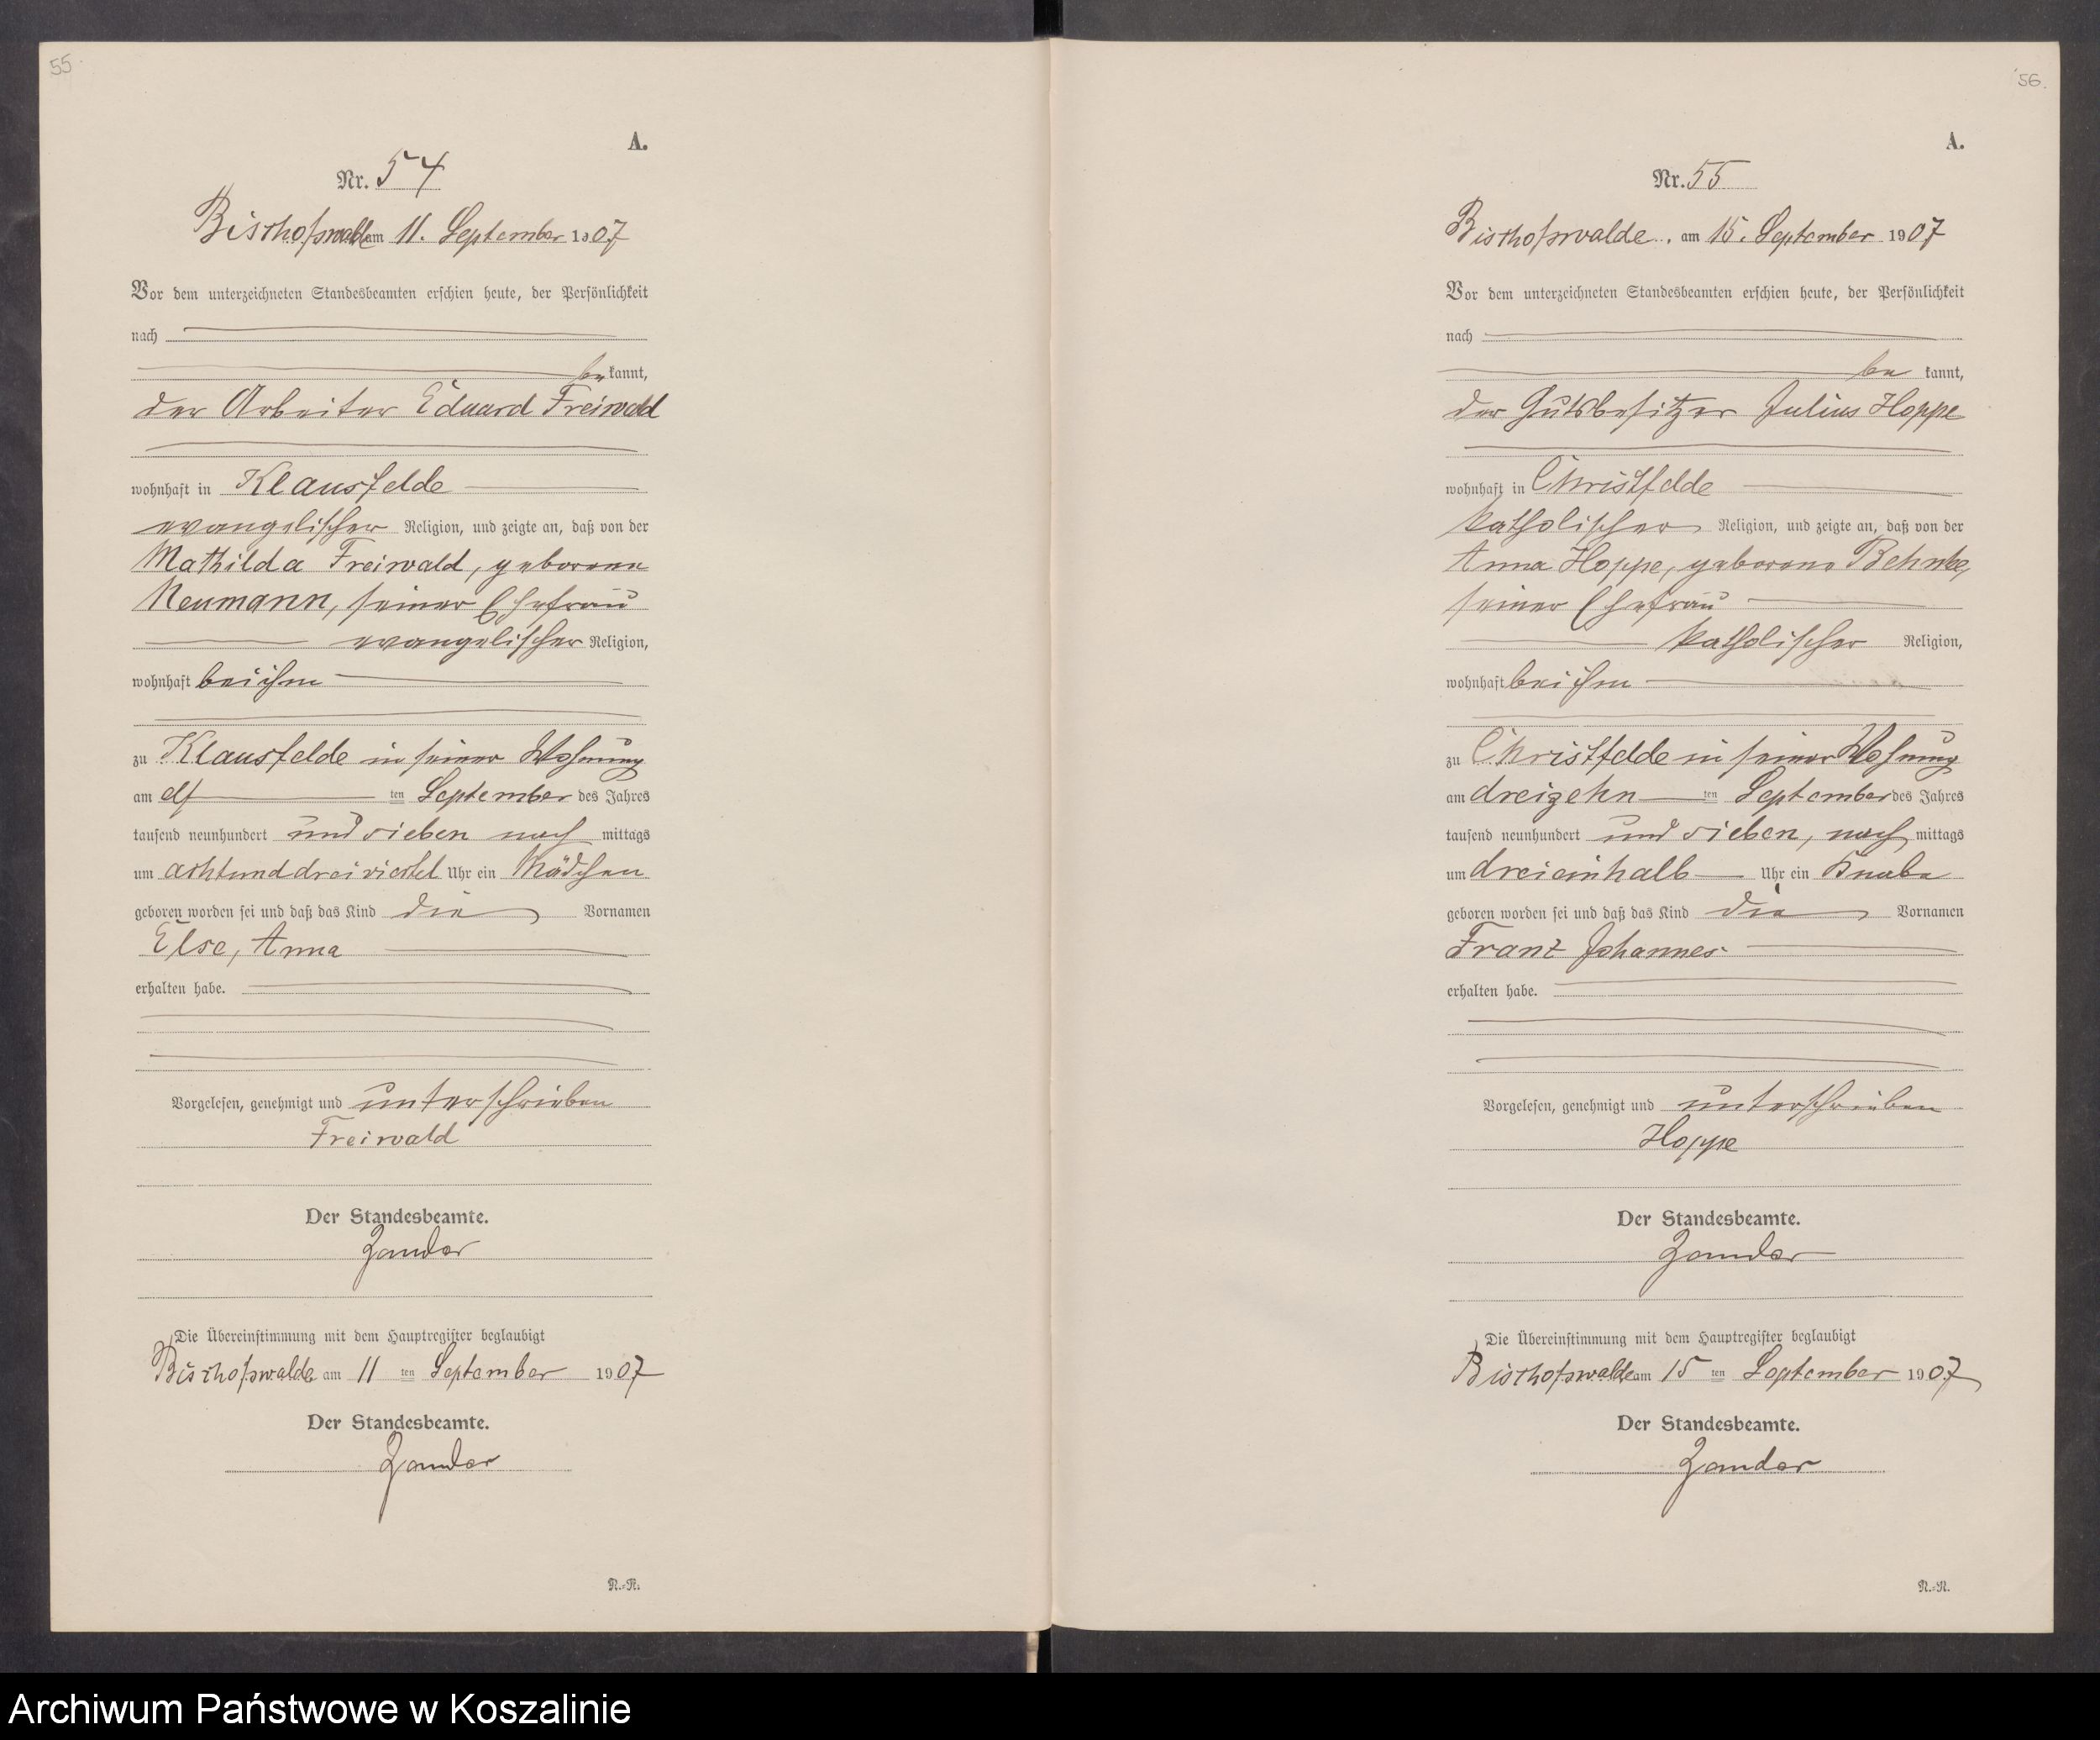 55.
A.
Nr. 54
Bischofswalde am 11. September 1907
Vor dem unterzeichneten Standesbeamten erschien heute, der Persönlichkeit
nach
be kannt,
der Arbeiter Eduard Freiwald
wohnhaft in Klausfelde
evangelischer Religion, und zeigte an, daß von der
Mathilda Freiwald, geborene
Neumann, seiner Ehefrau
evangelischer Religion,
wohnhaft bei ihm
zu Klausfelde in seiner Wohnung
am elf ten September des Jahres
tausend neunhundert und sieben nach mittags
um achtunddreiviertel Uhr ein Mädchen
geboren worden sei und daß das Kind die Vornamen
Else, Anna
erhalten habe.
Vorgelesen, genehmigt und unterschrieben
Freiwald
Der Standesbeamte.
Zander
Die Übereinstimmung mit dem Hauptregister beglaubigt
Bischofswalde am 11 ten September 1907
Der Standesbeamte.
Zander
N.-N.
56.
A.
Nr. 55
Bischofswalde, am 15. September 1907
Vor dem unterzeichneten Standesbeamten erschien heute, der Persönlichkeit
nach
be kannt,
der Gutsbesitzer Julius Hoppe
wohnhaft in Christfelde
katholischer Religion, und zeigte an, daß von der
Anna Hoppe, geborene Behnke,
seiner Ehefrau
katholischer Religion,
wohnhaft bei ihm
zu Christfelde in seiner Wohnung
am dreizehn ten September des Jahres
tausend neunhundert und sieben, nach mittags
um dreieinhalb Uhr ein Knabe
geboren worden sei und daß das Kind die Vornamen
Franz Johannes
erhalten habe.
Vorgelesen, genehmigt und unterschrieben
Hoppe
Der Standesbeamte.
Zander
Die Übereinstimmung mit dem Hauptregister beglaubigt
Bischofswalde am 15 ten September 1907
Der Standesbeamte.
Zander
N.-N.
Archiwum Państwowe w Koszalinie